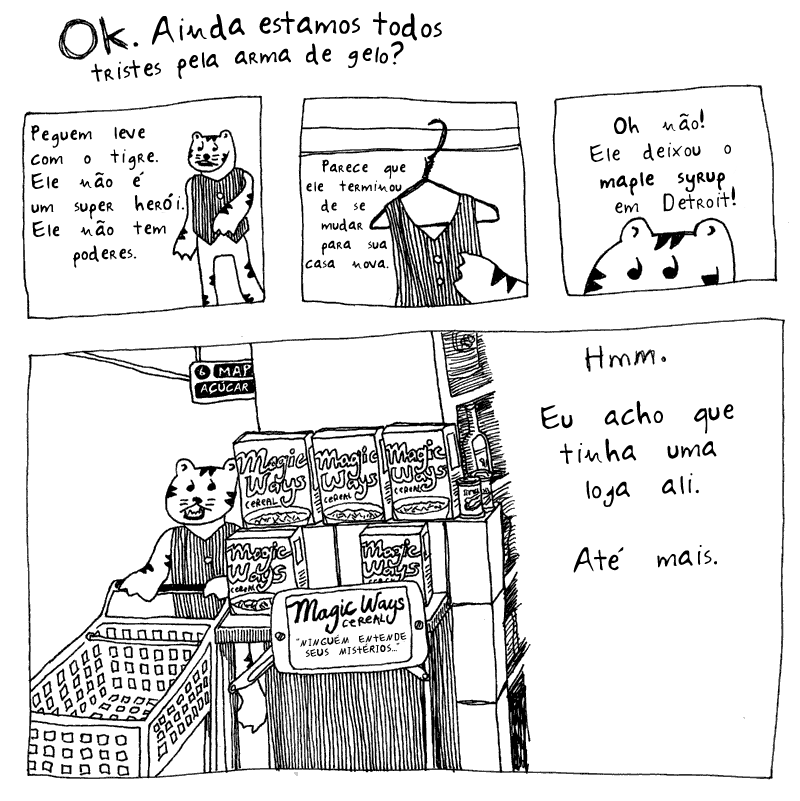 Ok. Ainda estamos todos
tristes pela arma de gelo?
Peguem leve
com o tigre.
Ele não é
um super herói.
Ele não tem
poderes.
Parece que
ele terminou
de se
mudar
para sua
casa nova.
Oh não!
Ele deixou o
maple syrup
em Detroit!
6 MAP
AÇÚCAR
Magic
Ways
CEREAL
Magic
Ways
CEREAL
Magic
Ways
CEREAL
Magic
Ways
CEREAL
Magic
Ways
Magic Ways
CEREAL
"NINGUÉM ENTENDE
SEUS MISTÉRIOS..."
Hmm.
Eu acho que
tinha uma
loja ali.
Até mais.